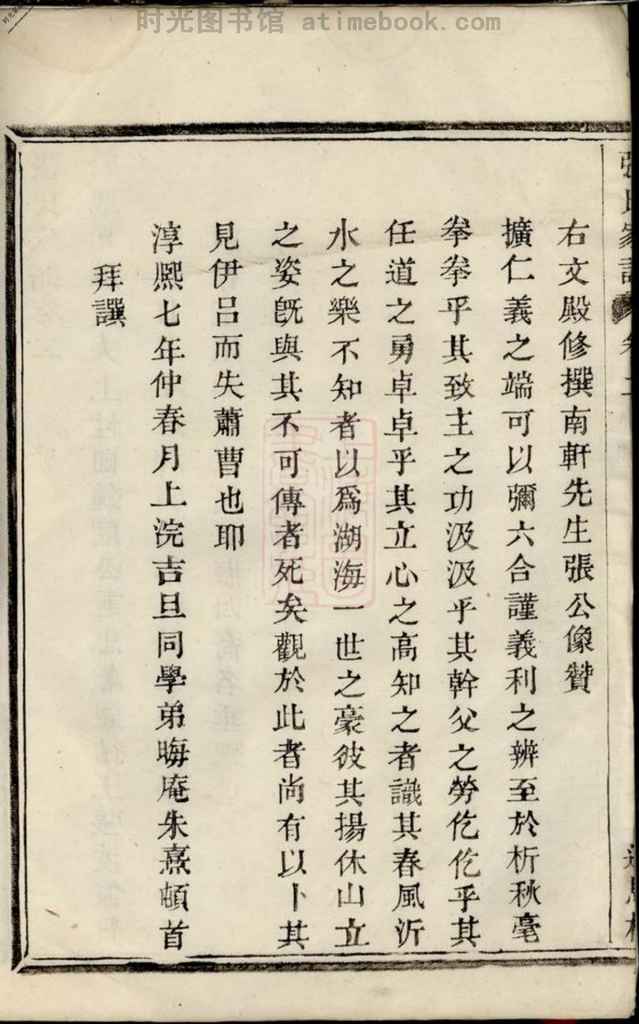 时光图书馆 atimebook.com
右文殿修撰南軒先生張公像贊
擴仁義之端可以彌六合謹義利之辨至於析秋毫
拳拳乎其致主之功汲汲乎其幹父之勞仡仡乎其
任道之勇卓卓乎其立心之高知之者識其春風沂
水之樂不知者以爲湖海一世之豪彼其揚休山立
之姿旣與其不可傳者死矣觀於此者尚有以卜其
見伊吕而失蕭曹也耶
淳熈七年仲春月上浣吉旦同學弟晦庵朱熹頓首
拜譔